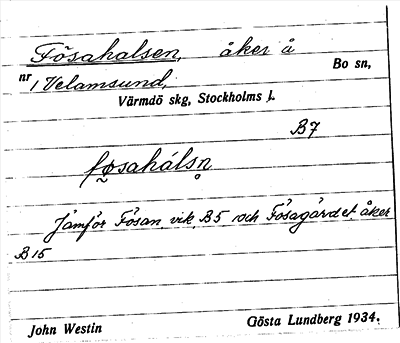 Fösahalsen, åker å
Bo sn,
nr 1 Velamsund,
Värmdö skg, Stockholms l.
B7
føsahálsn̥
Jämför Fösan, vik, B5 och Fösagärdet, åker
B15
John Westin
Gösta Lundberg 1934.